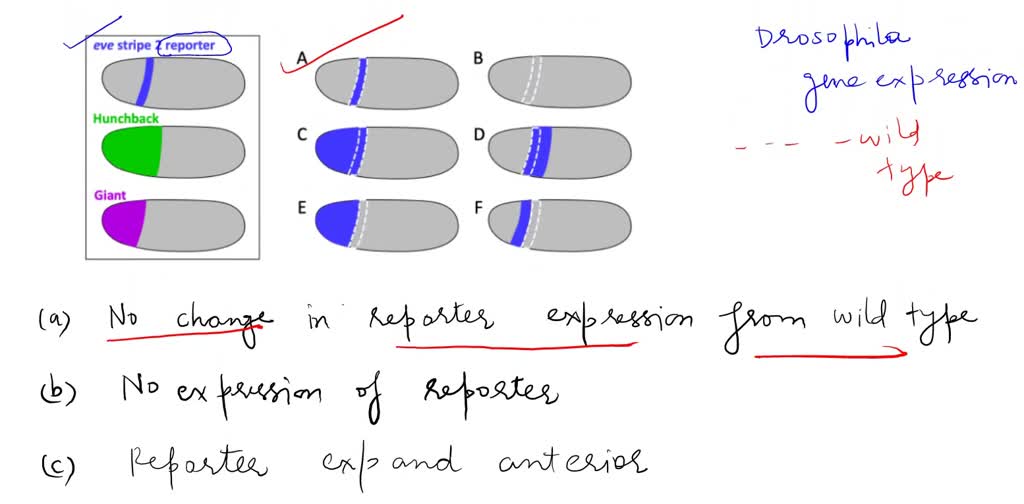 eve stripe 2 reporter
Hunchback
Giant
A
B
C
D
E
F
Drosophila
gene expression
- - - - wild
type
(a) No change in reporter expression from wild type
(b) No expression of reporter
(c) Reporter expand anterior